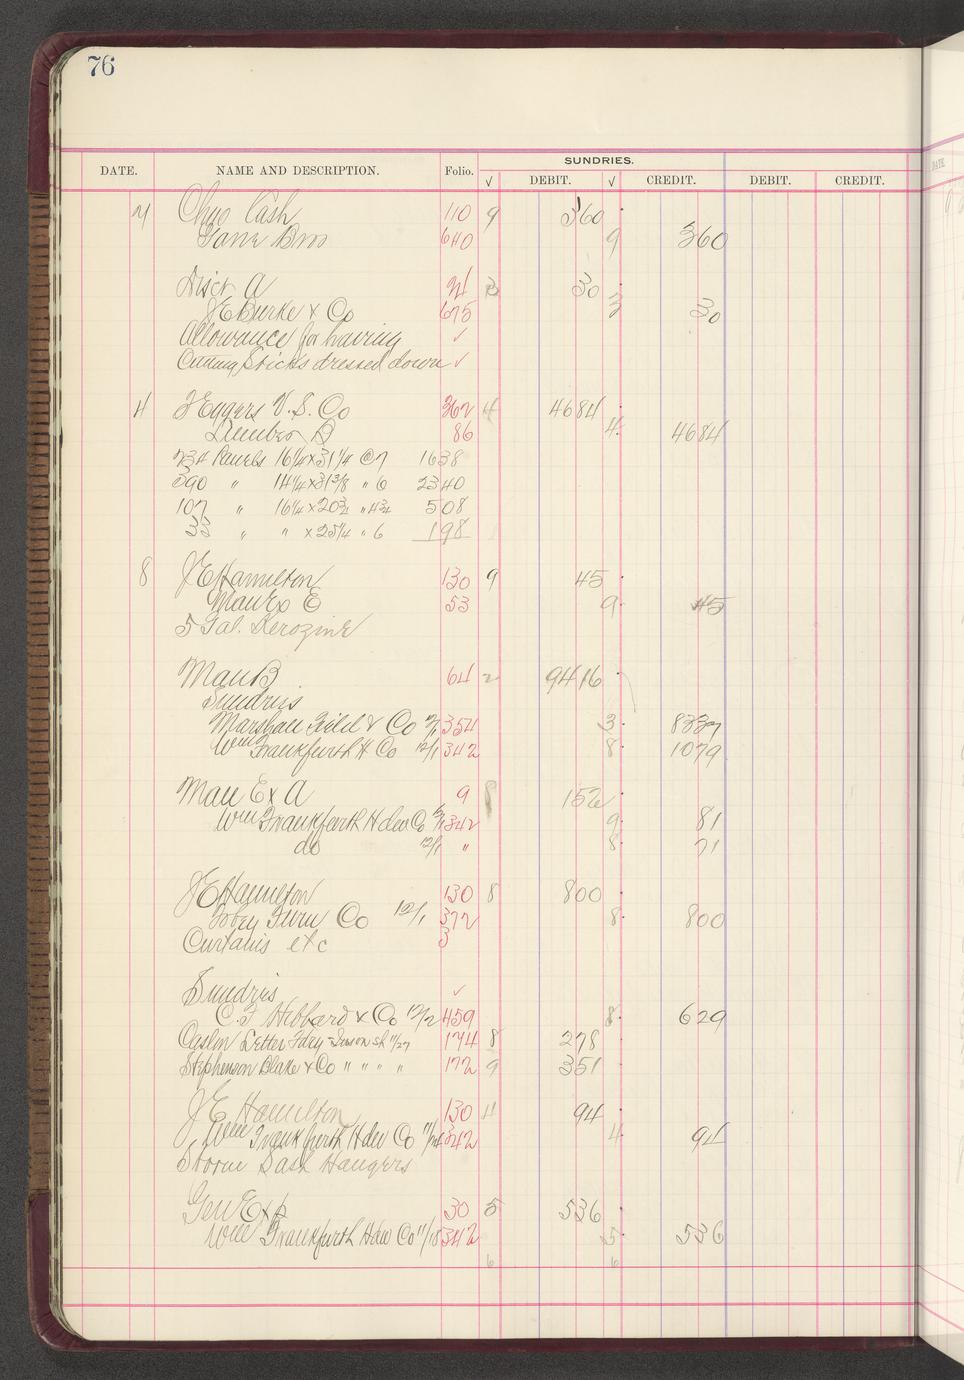 76
SUNDRIES.
DATE. NAME AND DESCRIPTION. Folio. √ DEBIT. √ CREDIT. DEBIT. CREDIT.
Ohio Cash 110 9 360
Bros 640 9 360
Disct A 21 3 30
J E Burke & Co 675 3 30
Allowance for having ✓
Cutting Sticks dressed down ✓
4 F Eggers V. S. Co 362 4 4684
Lumber B 86 4 4684
234 Panels 16 1/4 x 31 1/4 @ 7 1638
390 " 14 1/4 x 31 3/8 " 6 2340
107 " 16 1/4 x 20 3/4 " 4 3/4 508
33 " " x 25 1/4 " 6 198
8 J E Hamilton 130 9 45
Man Ex E 53 9 45
5 Gal. Kerozine
Man B 64 2 9416
Sundries
Marshall Field & Co 354 3 8337
Wm Frankfurth H Co 12/1 342 8 1079
Man Ex A 9 8 152
Wm Frankfurth H dw Co 342 9 81
do 12/1 " 8 71
J E Hamilton 130 8 800
Tobey Furn Co 12/1 372 8 800
Curtains etc 3
Sundries ✓
C. F Hibbard & Co 12/2 459 8 629
Caslon Letter Fdry 11/27 174 8 278
Stephenson Blake & Co " " " " 172 9 351
J E Hamilton 130 4 94
Wm Frankfurth H dw Co 342 4 94
Storm Sash Hangers
Gen Ex A 30 5 536
Wm Frankfurth Hdw Co 11/18 342 5 536
6 6
DATE